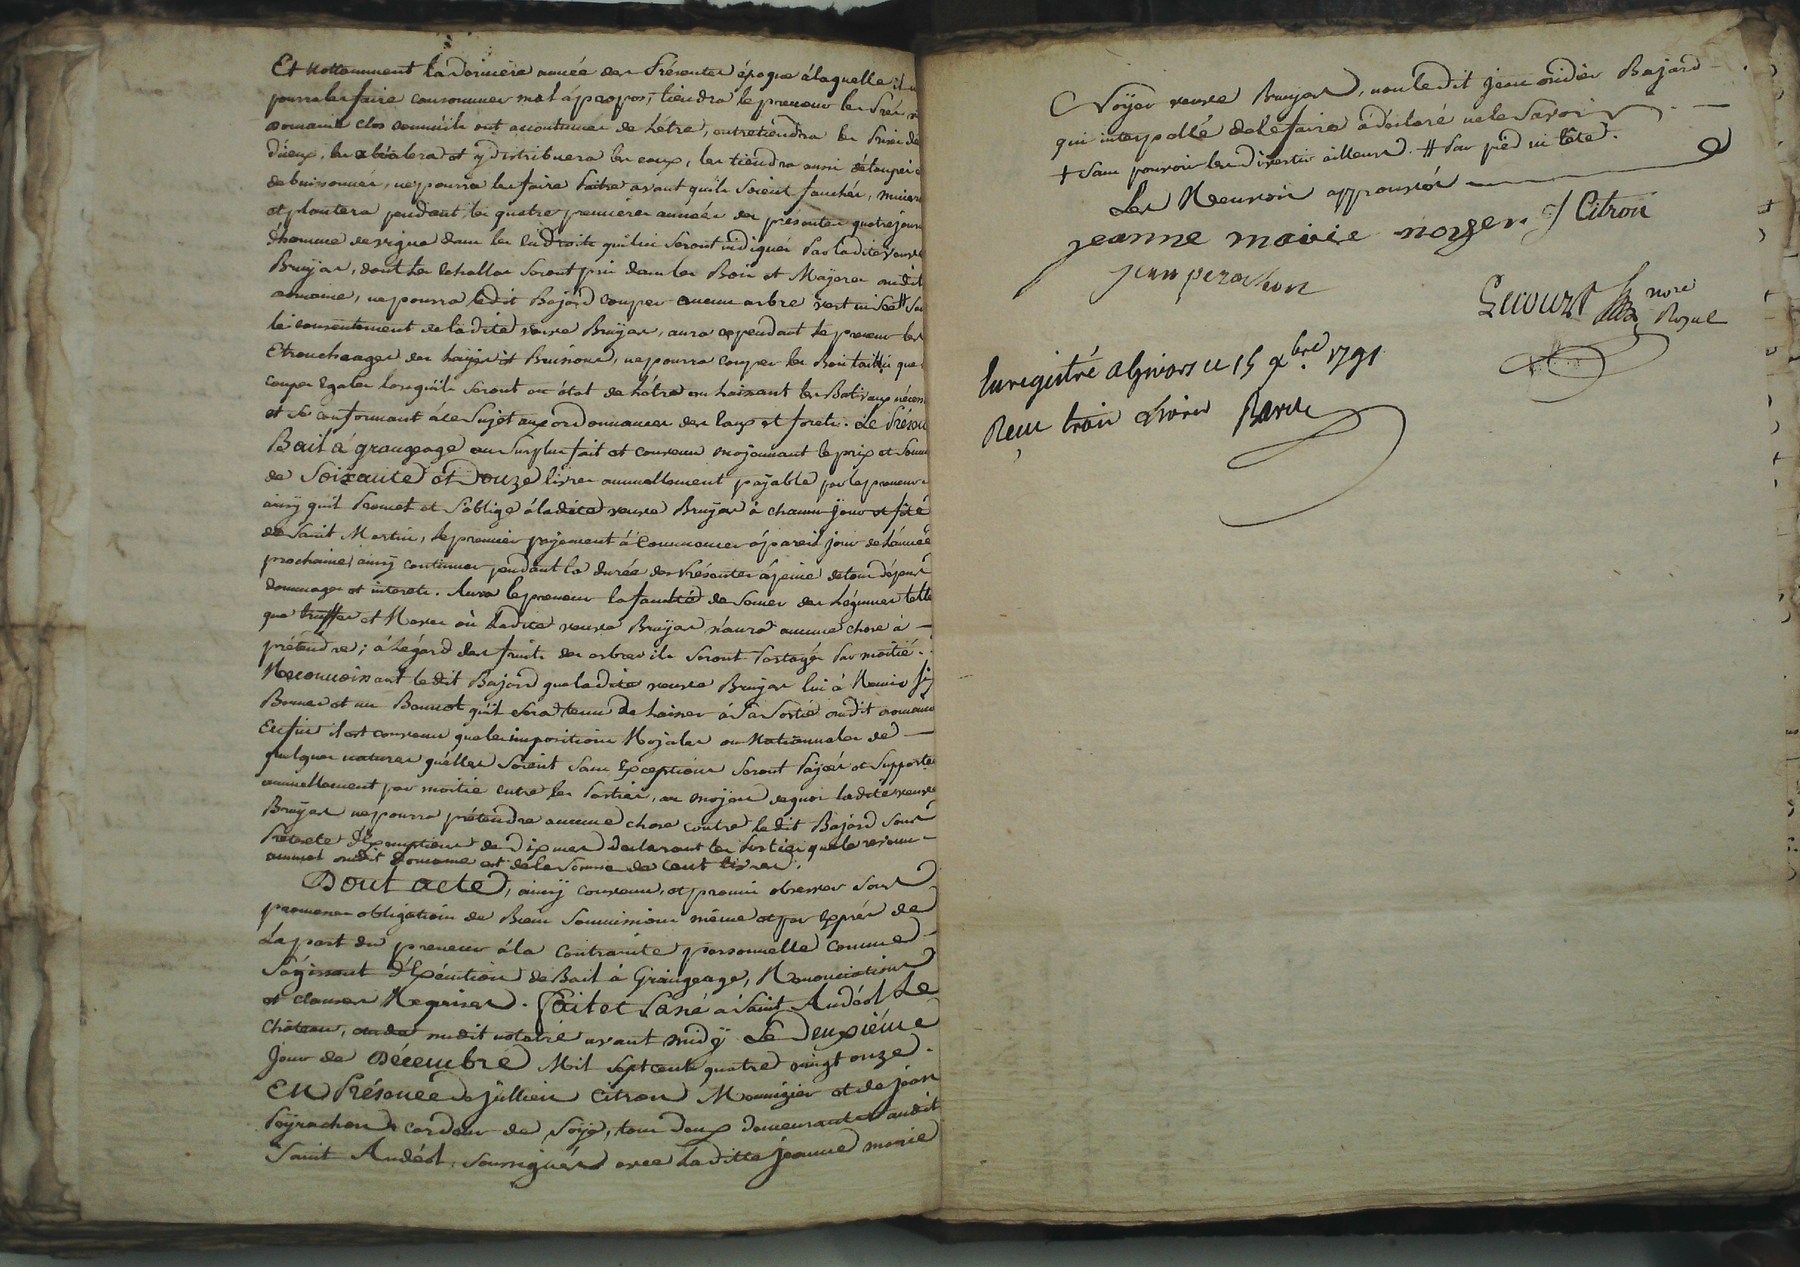 Et nottamment la derniere année des présentes époque à laquelle il
pourra les faire consommer mal à propos, tiendra le preneur les prés,
domaine clos comm'ils ont accoutumés de l'étre, entretiendra les prises
d'eaux, les et y distribuera les eaux, les tiendra aussi
debuissonnés, ne pourra les faire paitre avant qu'ils soient fauchés, minera
et plantera pendant les quatre premieres années des présentes quatre jours
d'homme de vigne dans les endroits qui lui seront indiqués par ladite veuve
Bruyas, dont les echallas seront pris dans les Bois et audit
domaine, ne pourra ledit Bajard couper aucun arbre vert ni sec # sans
le consentement de ladite veuve Bruyas, aura cependant le preneur les
Etronchages des hayes et Buissons, ne pourra couper les Bois taillis que
coupes Egales lorsqu'ils seront en état de l'étre en laissant les Balivaux
et se conformant à ce sujet aux ordonnances des eaux et forets. Le présent
Bail à grangeage au surplus fait et convenu moyennant le prix et somme
de Soixante et Douze livres annuellement payable par le preneur
ainsy qu'il promet et s'oblige à ladite veuve Bruyas à chacun jour et féte
de Saint Martin, le premier payement à commencer à pareil jour de l'année
prochaine, ainsy continuer pendant la durée des présentes à peine de tous dépens
dommages et interets. Aura le preneur la faculté de semer des légumes telle
que truffes et Raves où ladite veuve Bruyas n'aura aucune chose à —
prétendre; à l'égard des fruits des arbres ils seront partagés par moitié.
Reconnoissant ledit Bajard que ladite veuve Bruyas lui à Remis
et un qu'il sera tenu de laisser à sa sortie audit domaine
Enfin il est convenu que les impositions Royales ou Nationnales de —
quelques natures qu'elles soient sans Exceptions seront payées et supportées
annuellement par moitié entre les parties, au moyen de quoi ladite veuve
Bruyas ne pourra prétendre aucune chose contre ledit Bajard sous
prétexte d'Exemptions de dixmes déclarant les parties que le revenu
annuel dudit Domaine est de la somme de cent livres.
Dont acte, ainsy convenu, et promis observer sous
promesses obligations de Biens soumissions même et par Exprés de
la part du preneur à la contrainte personnelle comme
s'agissant d'Exécution de Bail à Grangeage, Renonciations
et clauses Requises. Fait et Passé à Saint Andéol Le
Château, nudit notaire avant midy Le Deuxiéme
Jour de Décembre Mil sept cents quatre vingt onze.
EN Présence de Jullien Citron et de jean
Peyrachon cardeur de soye, tous deux demeurants audit
Saint Andéol, soussignés avec Laditte jeanne marie
Noyer veuve Bruyas, non ledit jean Bajard —
qui interpellé de le faire à déclaré ne le savoir —
+ sans pouvoir les divertir ailleurs. # par pied ni téte.
Les Renvois approuvés
jeanne marie noyer J Citron
jean perachon
Lecourt nore
Royal
Enregistré a Givors ce 15 xbre 1791
Reçu trois livres